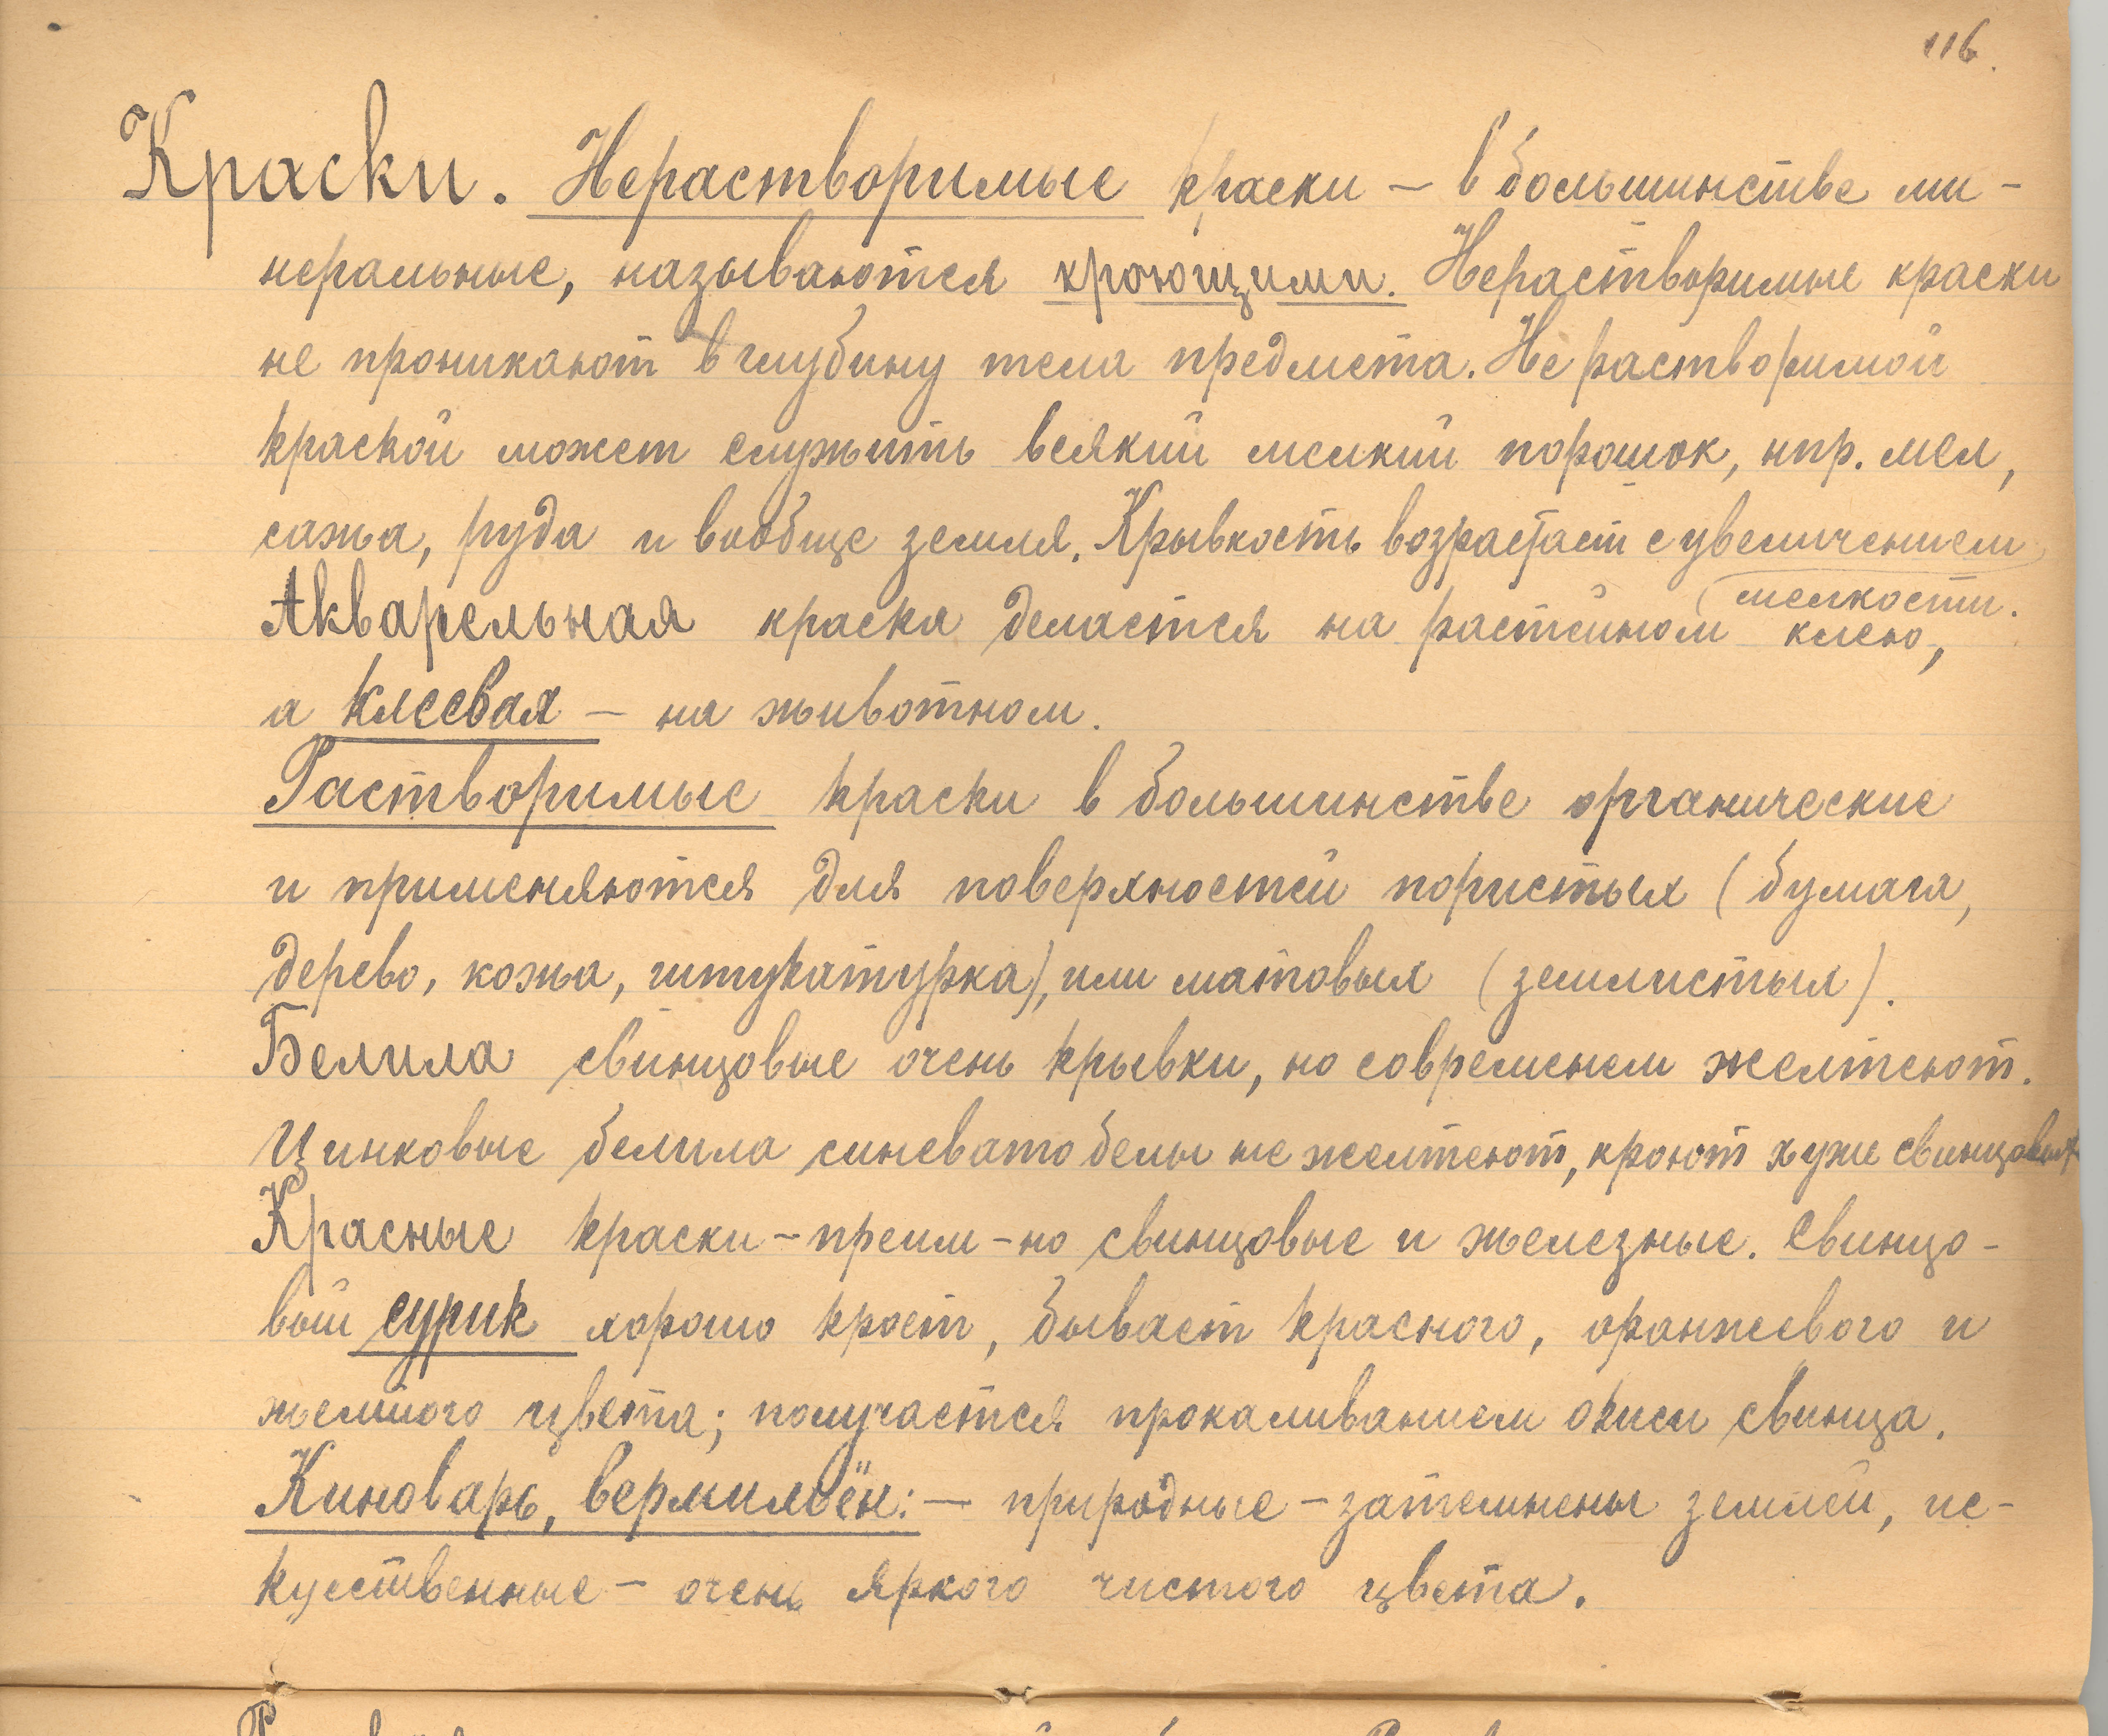 116.
Краски. Нерастворимые краски – в большинстве ми-
неральные, называются кроющими. Нерастворимые краски
не проникают в глубину тела предмета. Не растворимой
краской может служить всякий мелкий порошок, нпр. мел,
сажа, руда и вообще земля. Крывкость возрастает с увеличением
(мелкости.
Акварельная краска делается на растейном клею,
а клеевая – на животном.
Растворимые краски в большинстве органические
и применяются для поверхностей пористых (бумага,
дерево, кожа, штукатурка), или матовых (землистых).
Белила свинцовые очень крывки, но современем желтеют.
Цинковые белила синевато белы не желтеют, кроют хуже свинцовых
Красные краски – преим-но свинцовые и железные. Свинцо-
вый сурик хорошо кроет, бывает красного, оранжевого и
желтого цвета; получается прокаливанием окиси свинца.
Киноварь, вермильён: – природные – затемнены землей, ис-
куственные – очень яркого чистого цвета.